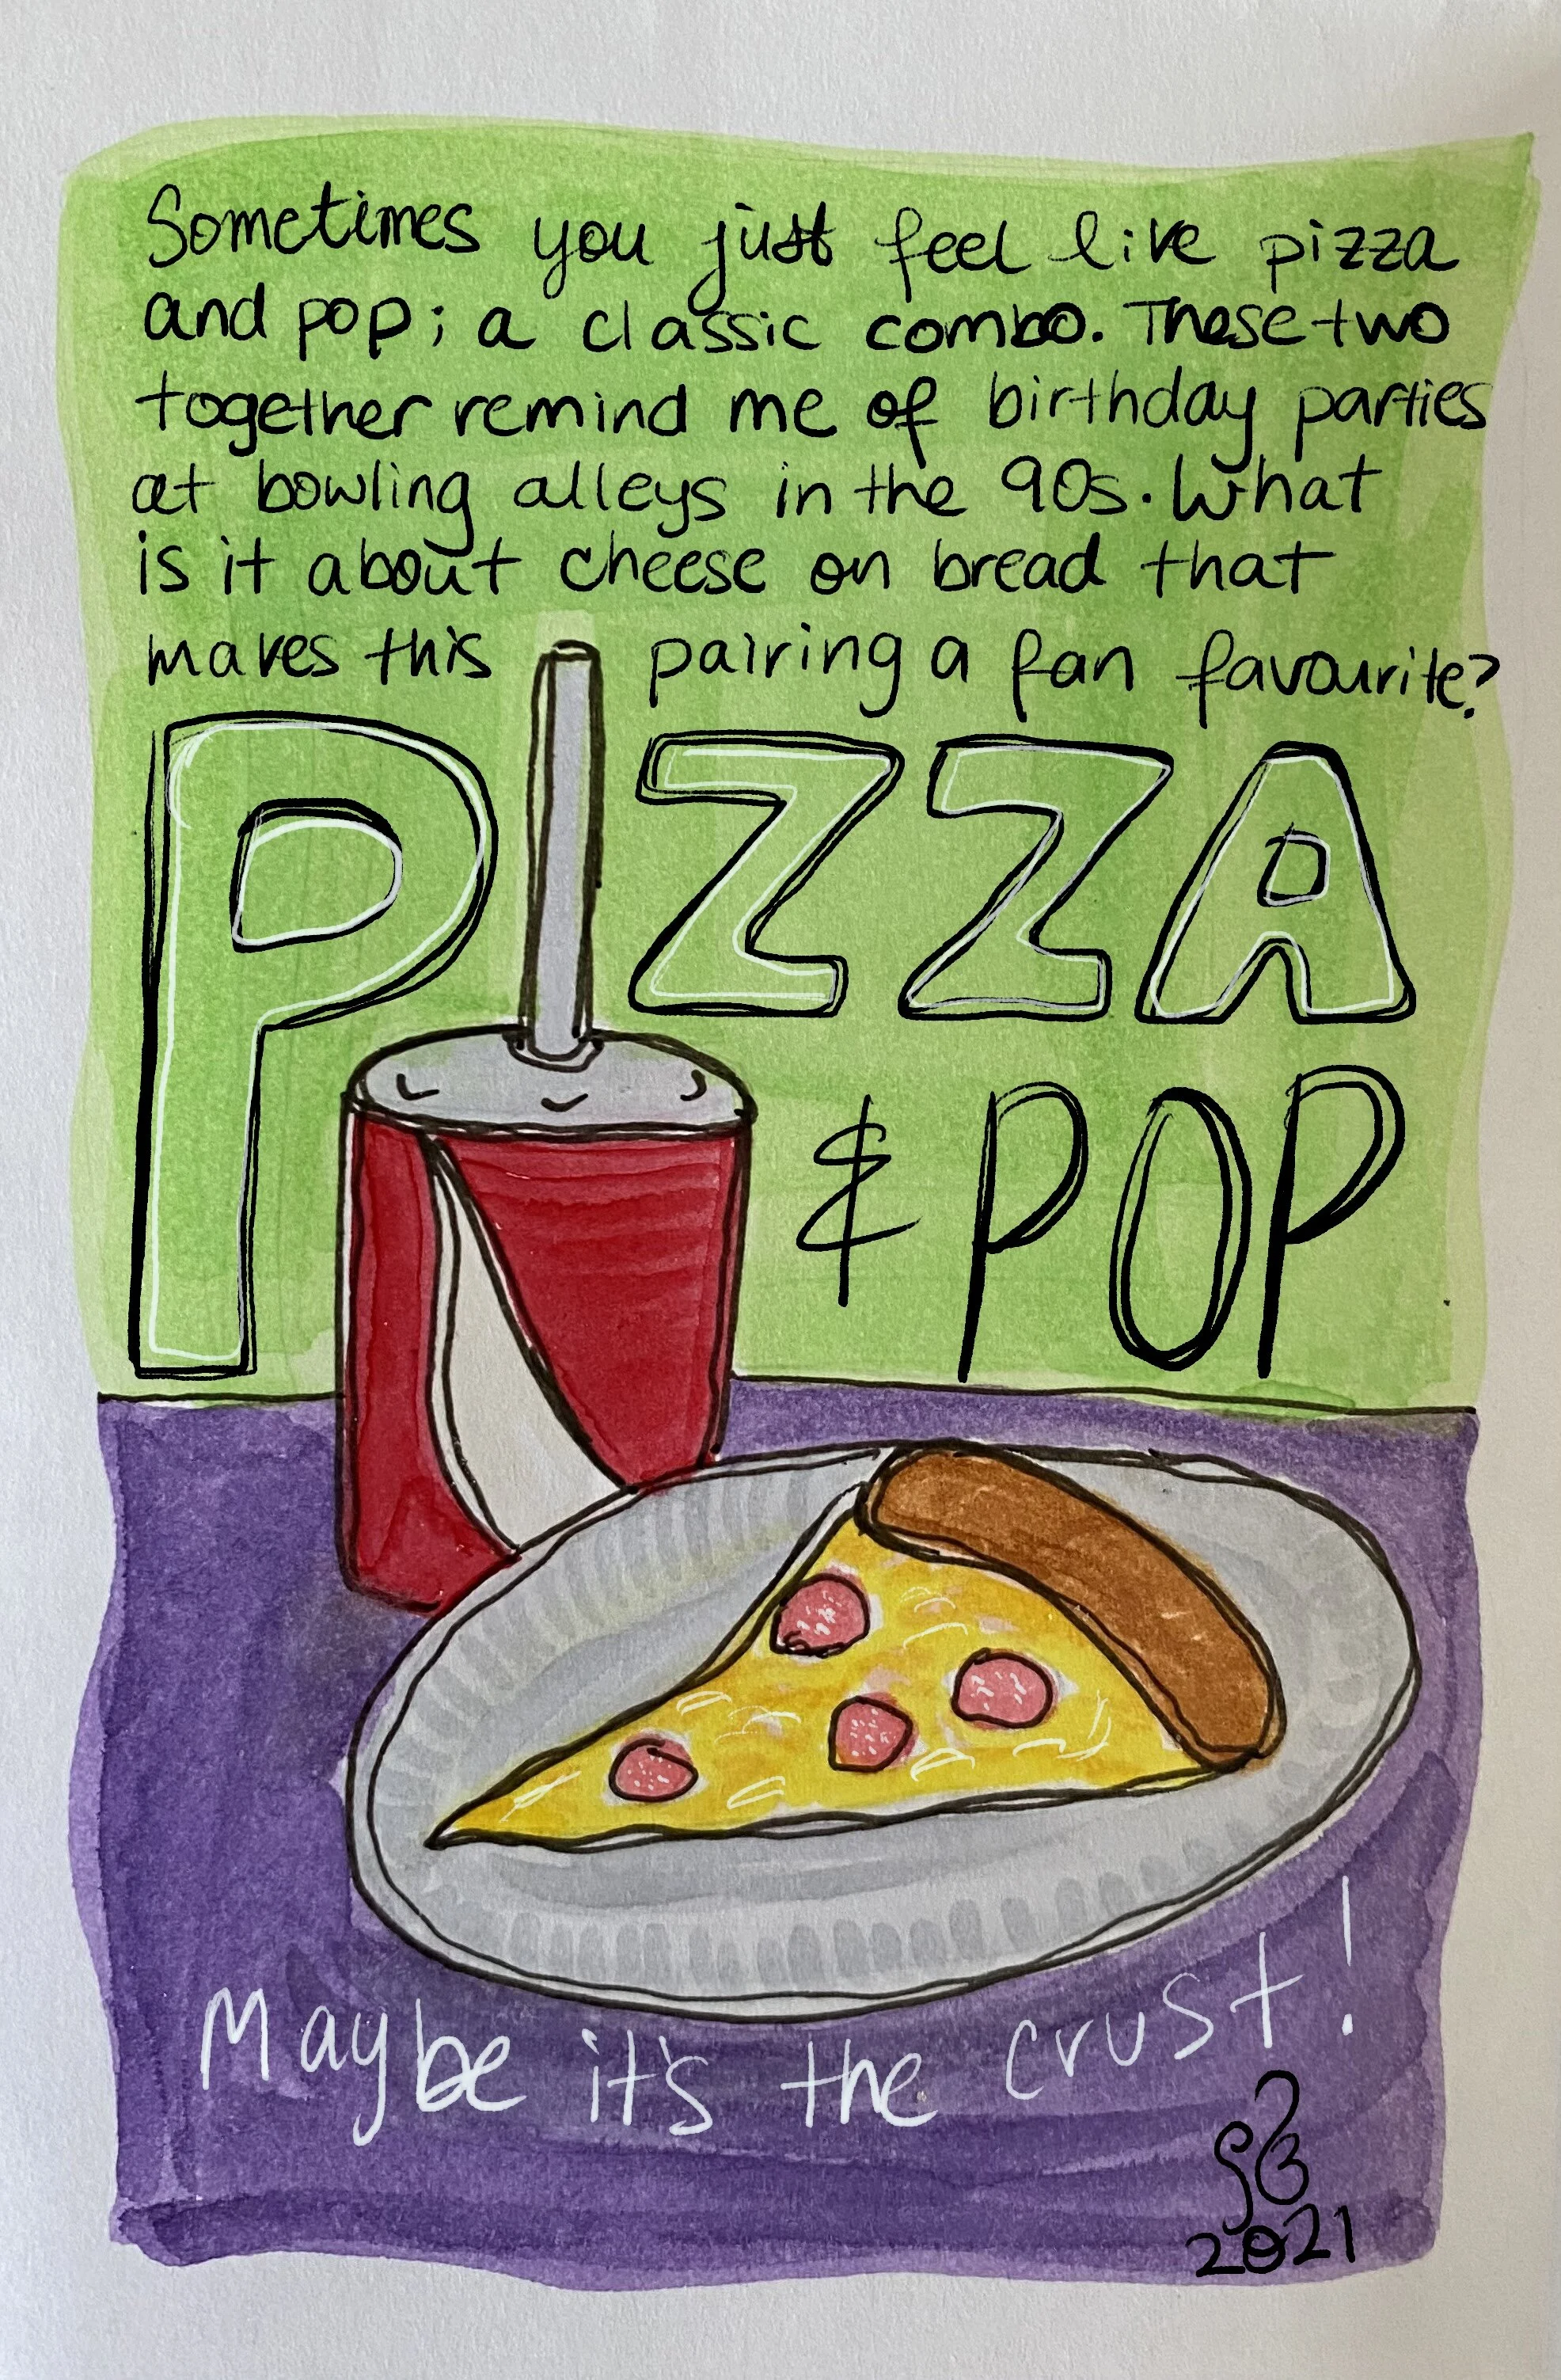 Sometimes you just feel like pizza
and pop; a classic combo. These two
together remind me of birthday parties
at bowling alleys in the 90s. What
is it about cheese on bread that
makes this pairing a fan favourite?
PIZZA
& POP
Maybe it's the crust!
SB
2021